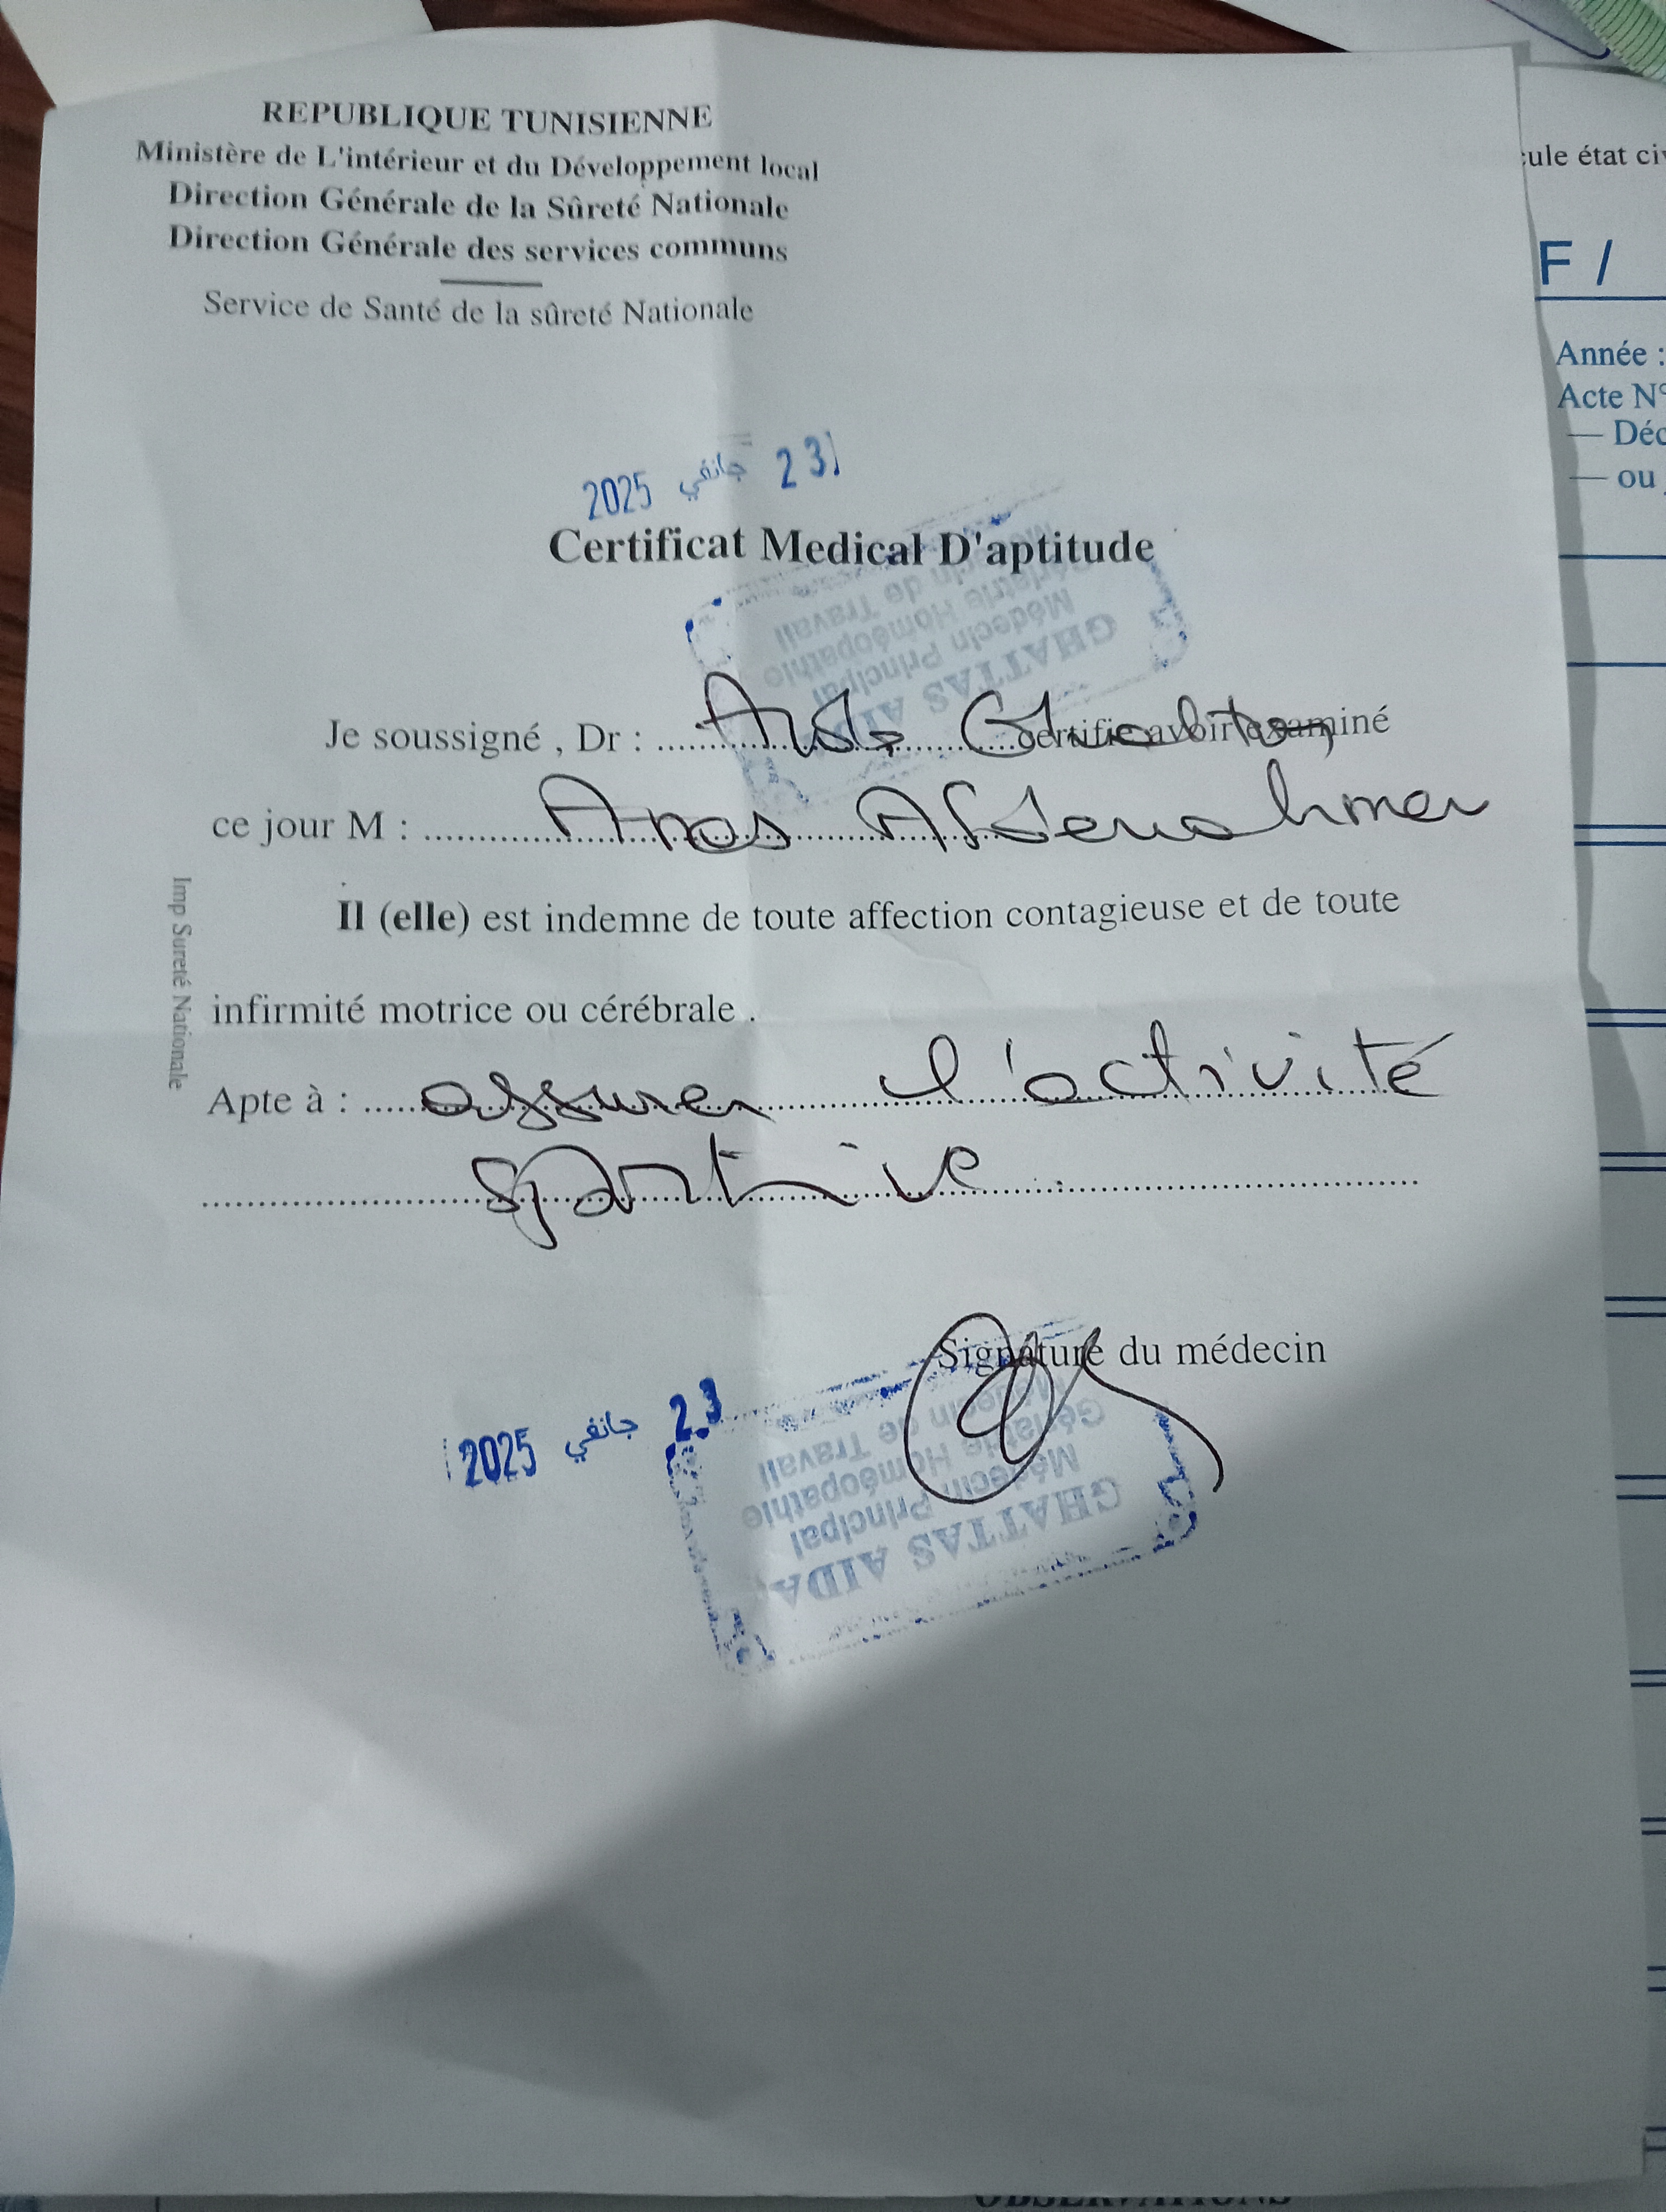 REPUBLIQUE TUNISIENNE
Ministère de L'intérieur et du Développement local
Direction Générale de la Sûreté Nationale
Direction Générale des services communs
Service de Santé de la sûreté Nationale
2025 جانفي 23
Certificat Medical D'aptitude
GHATTAS AIDA
Médecin Principal
Homéopathie
Médecin de Travail
Je soussigné , Dr : Aida Ghattas certifie avoir examiné
ce jour M : Anas Abderrahmen
Il (elle) est indemne de toute affection contagieuse et de toute
infirmité motrice ou cérébrale .
Apte à : assurer l'activité
sportive
Imp Sureté Nationale
Signature du médecin
2025 جانفي 23
GHATTAS AIDA
Médecin Principal
Gériatrie Homéopathie
Médecin de Travail
état
F /
Année :
Acte N°
— ou
OBSERVATIONS